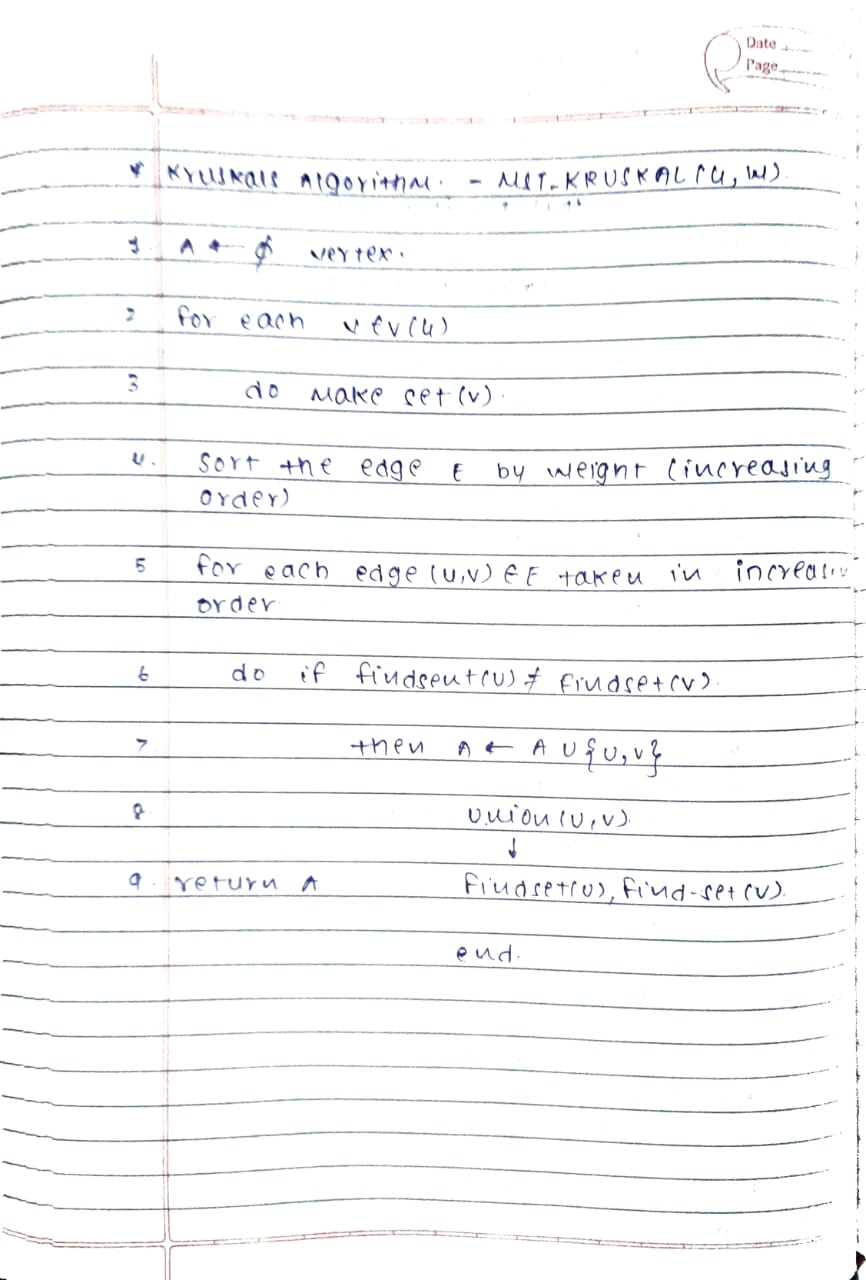 Date
Page
* Kruskals Algorithm. - MST-KRUSKAL (G, W).
1. A ← ϕ vertex.
2 for each v ∈ V(G)
3 do Make set (v).
4. Sort the edge E by weight (increasing
order)
5 for each edge (u,v) ∈ E taken in increasin
order
6 do if findseut(u) ≠ findset(v).
7 then A ← A ∪ {u,v}
8 union (u,v).
↓
9. return A findset(u), find-set (v).
end.